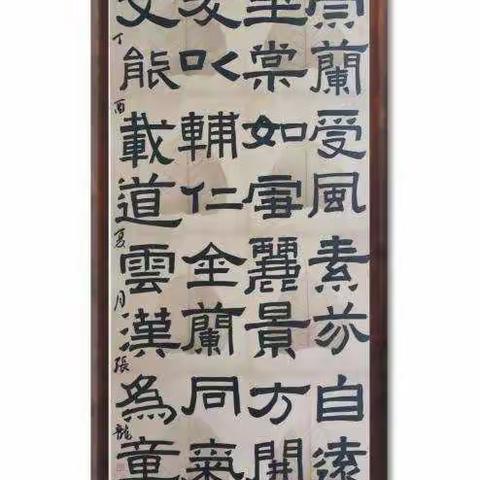 崇蘭受風素芬自遠
棠如雪麗景方開
友以輔仁金蘭同氣
文能載道雲漢為章
丁酉夏月張龍